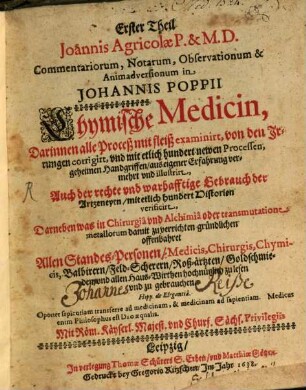 Erster Theil
Joannis Agricolæ P. & M. D.
Commentariorum, Notarum, Observationum &
Animadversionum in
JOHANNIS POPPII
Chymische Medicin,
Darinnen alle Proceß mit fleiß examinirt, von den Ir-
rungen corrigirt, und mit etlich hundert newen Processen,
geheimen Handgriffen/ aus eigener Erfahrung ver-
mehrt und illustrirt,
Auch der rechte und warhafftige Gebrauch der
Artzeneyen/ mit etlich hundert Historien
verificirt.
Darneben was in Chirurgiâ und Alchimiâ oder transmutatione
metallorum damit zu verrichten gründlicher
offenbahret
Allen Standes/ Personen/ Medicis, Chirurgis, Chymi-
cis, Balbirern/ Feld-Scherern/ Roß-ärtzten/ Goldschmie-
den und allen Hauß-Vättern hochnützlich zu lesen
und zu gebrauchen
Johannes
Hipp. de Elegantiâ.
Oportet sapientiam transferre ad medicinam, & medicinam ad sapientiam. Medicus
enim Philosophus est Deo æqualis.
Mit Röm. Käyserl. Majest. und Churf. Sächs. Privilegiis
Leipzig/
In verlegung Thomæ Schürers S. Erben/ und Matthiæ Götzen.
Gedruckt bey Gregorio Ritzschen/ Im Jahr 1638.